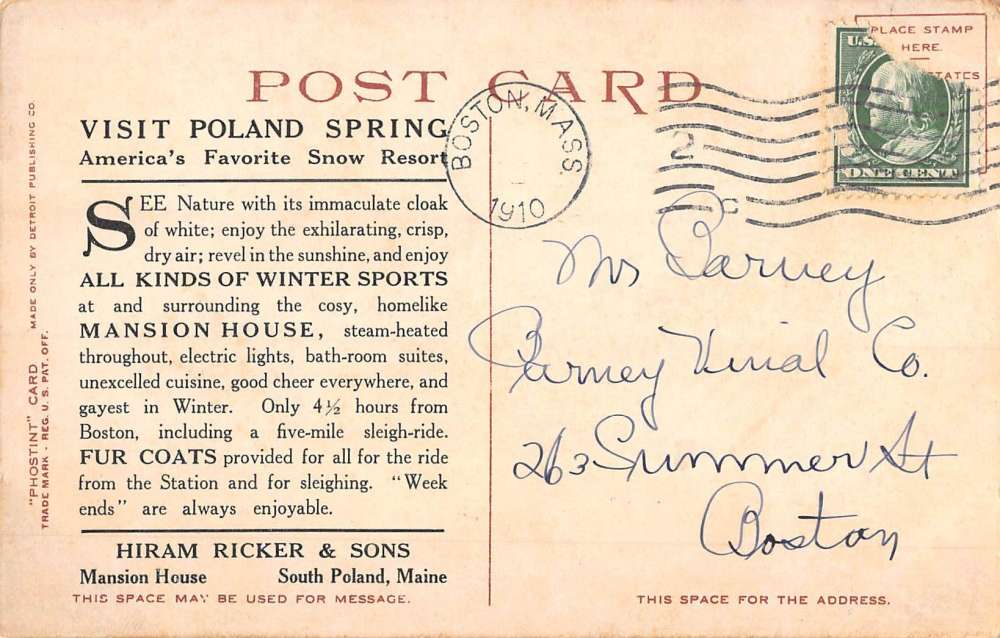 POST CARD
PLACE STAMP
HERE
TATES
U.S.
ONE CENT
BOSTON, MASS.
1910
2
C
VISIT POLAND SPRING
America's Favorite Snow Resort
SEE Nature with its immaculate cloak
of white; enjoy the exhilarating, crisp,
dry air; revel in the sunshine, and enjoy
ALL KINDS OF WINTER SPORTS
at and surrounding the cosy, homelike
MANSION HOUSE, steam-heated
throughout, electric lights, bath-room suites,
unexcelled cuisine, good cheer everywhere, and
gayest in Winter. Only 4½ hours from
Boston, including a five-mile sleigh-ride.
FUR COATS provided for all for the ride
from the Station and for sleighing. "Week
ends" are always enjoyable.
HIRAM RICKER & SONS
Mansion House South Poland, Maine
THIS SPACE MAY BE USED FOR MESSAGE.
"PHOSTINT" CARD MADE ONLY BY DETROIT PUBLISHING CO.
TRADE MARK - REG. U. S. PAT. OFF.
Co.
263 Summer St
Boston
THIS SPACE FOR THE ADDRESS.